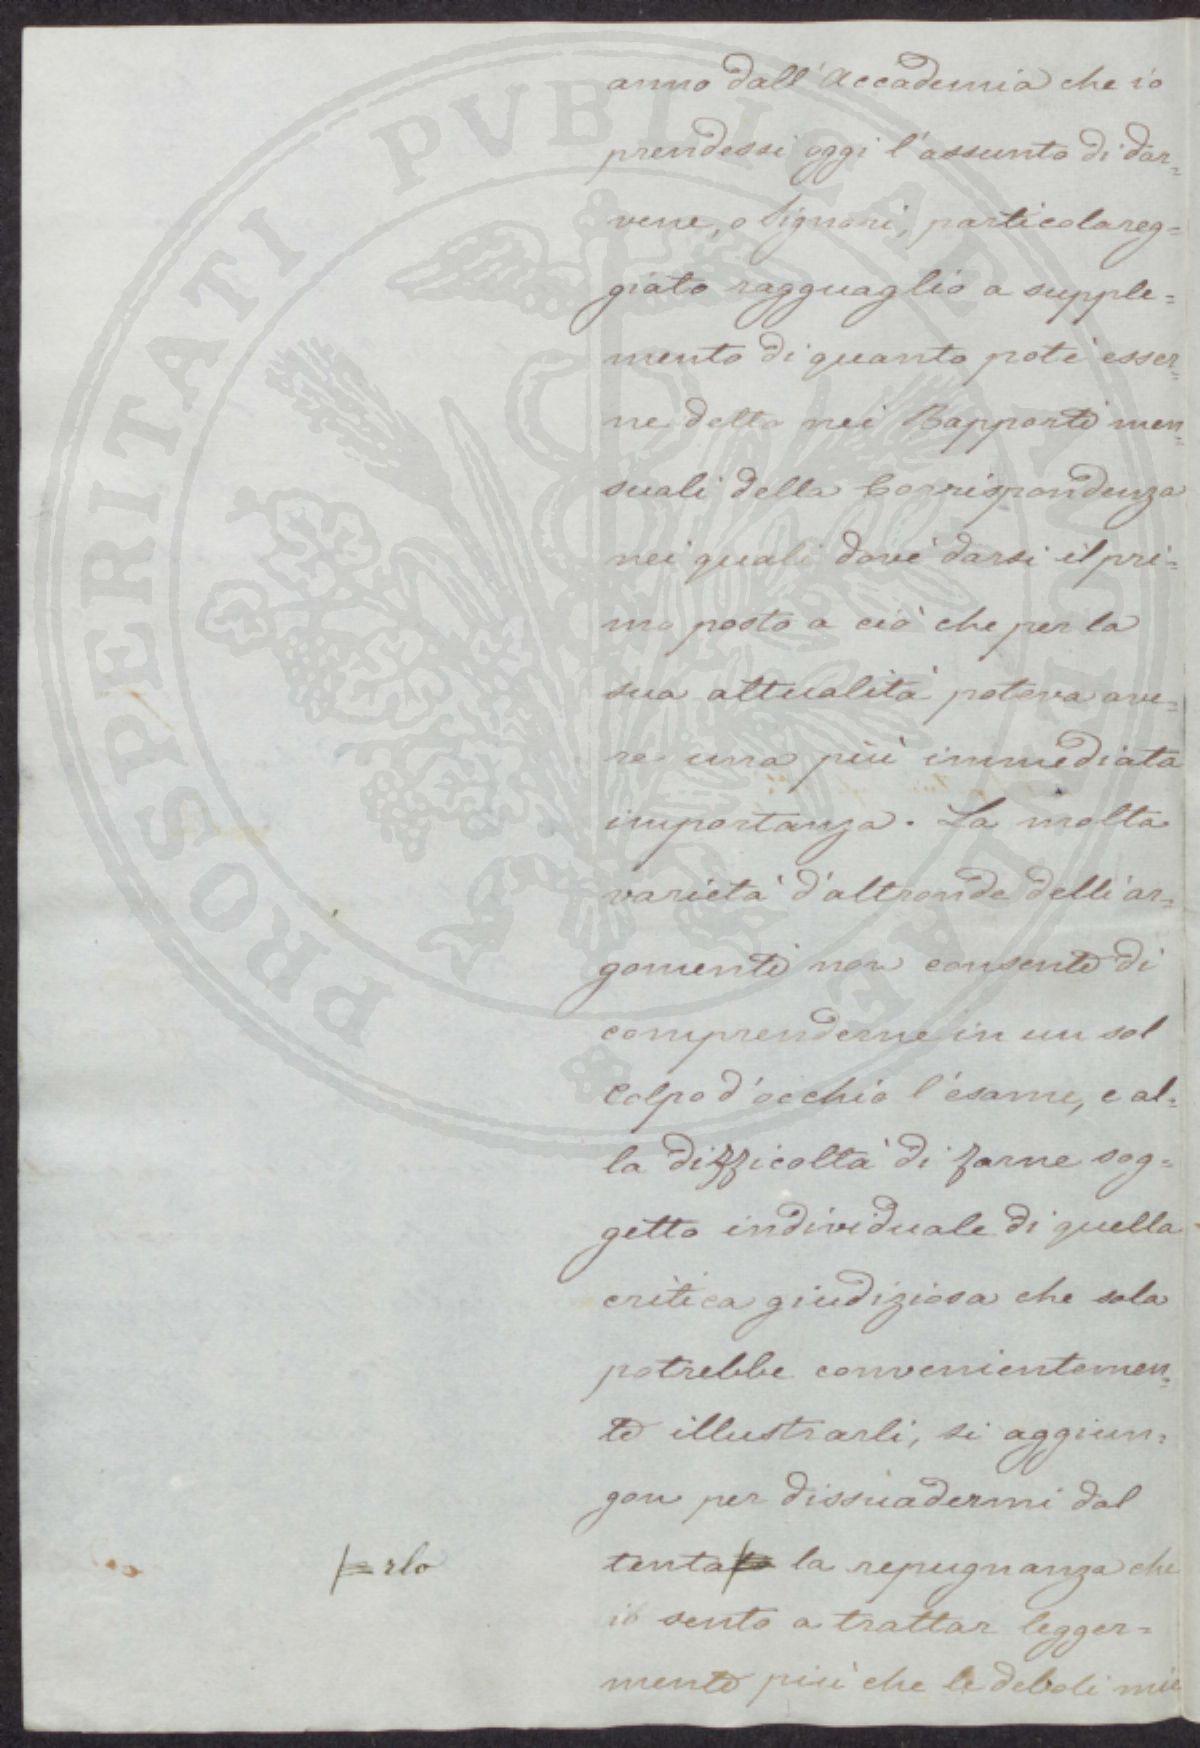 anno dall'Accademia che io
prendessi oggi l'assunto di dar=
vene, o Signori, particolareg=
giato ragguaglio a supple=
mento di quanto potè esser=
ne detto nei Rapporti men=
suali della Corrispondenza
nei quali dovè darsi il pri=
mo posto a ciò che per la
sua attualità poteva ave=
re una più immediata
importanza. La molta
varietà d'altronde delli ar=
gomenti non consente di
comprenderne in un sol
colpo d'occhio l'esame, e al=
la difficoltà di farne sog=
getto individuale di quella
critica giudiziosa che sola
potrebbe convenientemen=
te illustrarli, si aggiun=
gon per dissuadermi dal
tenta la repugnanza che
rlo
io sento a trattar legger=
mente più che le deboli mie
PROSPERITATI PVBLICAE AVGENDAE